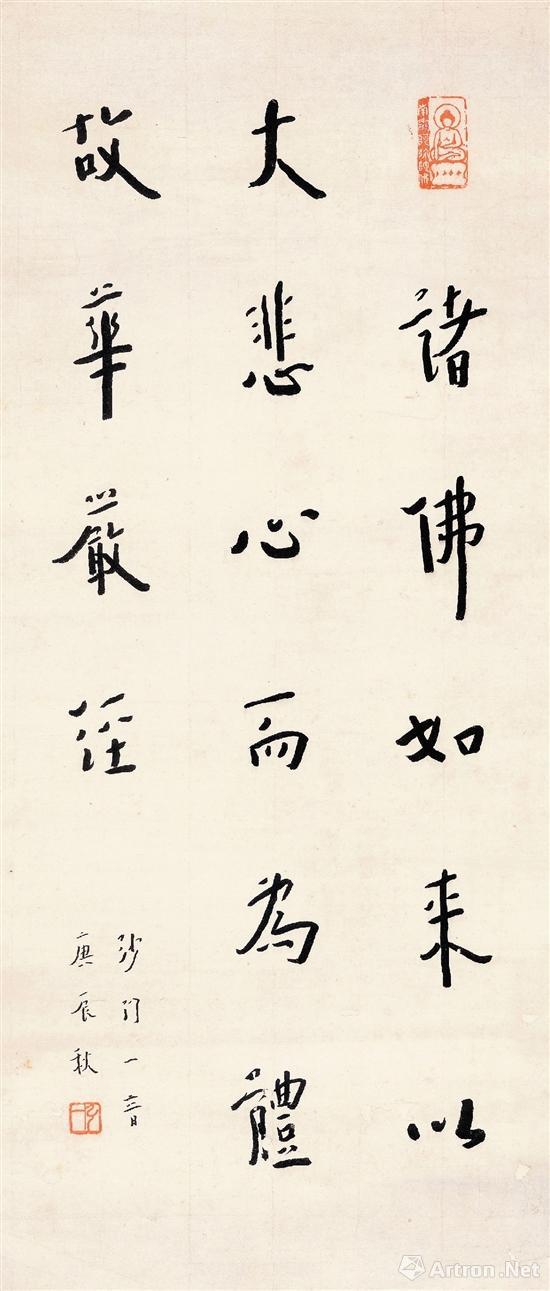 諸佛如来以
大悲心而為體
故華嚴經
沙門一音
庚辰秋
Artron.Net